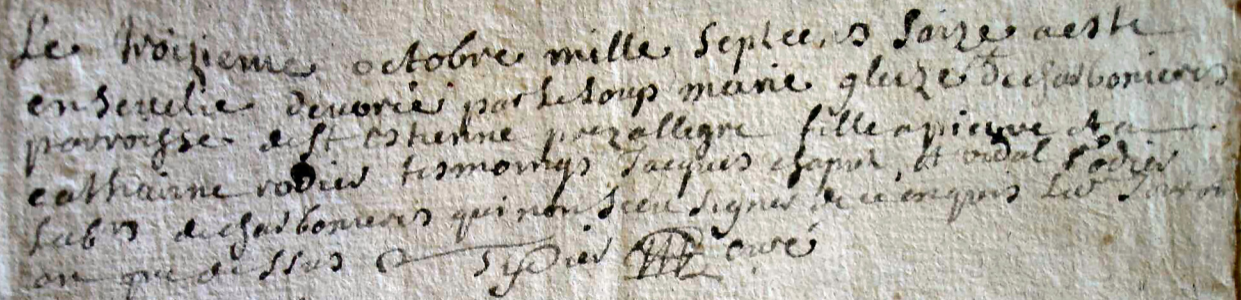 Le troizieme octobre mille septcens saize a esté
ensevelie devorée par le loup marie gleize de charbonieres
parroisse de st estienne prez allegre fille a pierre et a
catharine rodier tesmoings Jacques chapuis et vidal rodier
hab^ts de charbonieres qui nont sceu signer de ce enquis les jour et
an que dessus curé